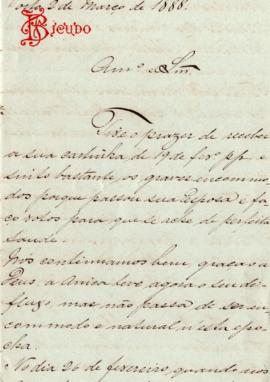 2 de Março de 1888.
BICUDO
Am.º e Snr.
Tive o prazer de receber
a sua cartinha de 19 de fev.º p.p. e
sinto bastante os graves incommo
dos porque passou sua Esposa e fa
ço votos para que se ache de perfeita
saude.
Nós continuamos bem, graças a
Deus, a Amica teve agora o seu de
fluxo, mas não passa de ser in
commodo e natural n'esta epo
cha.
No dia 26 de fevereiro, quando nos